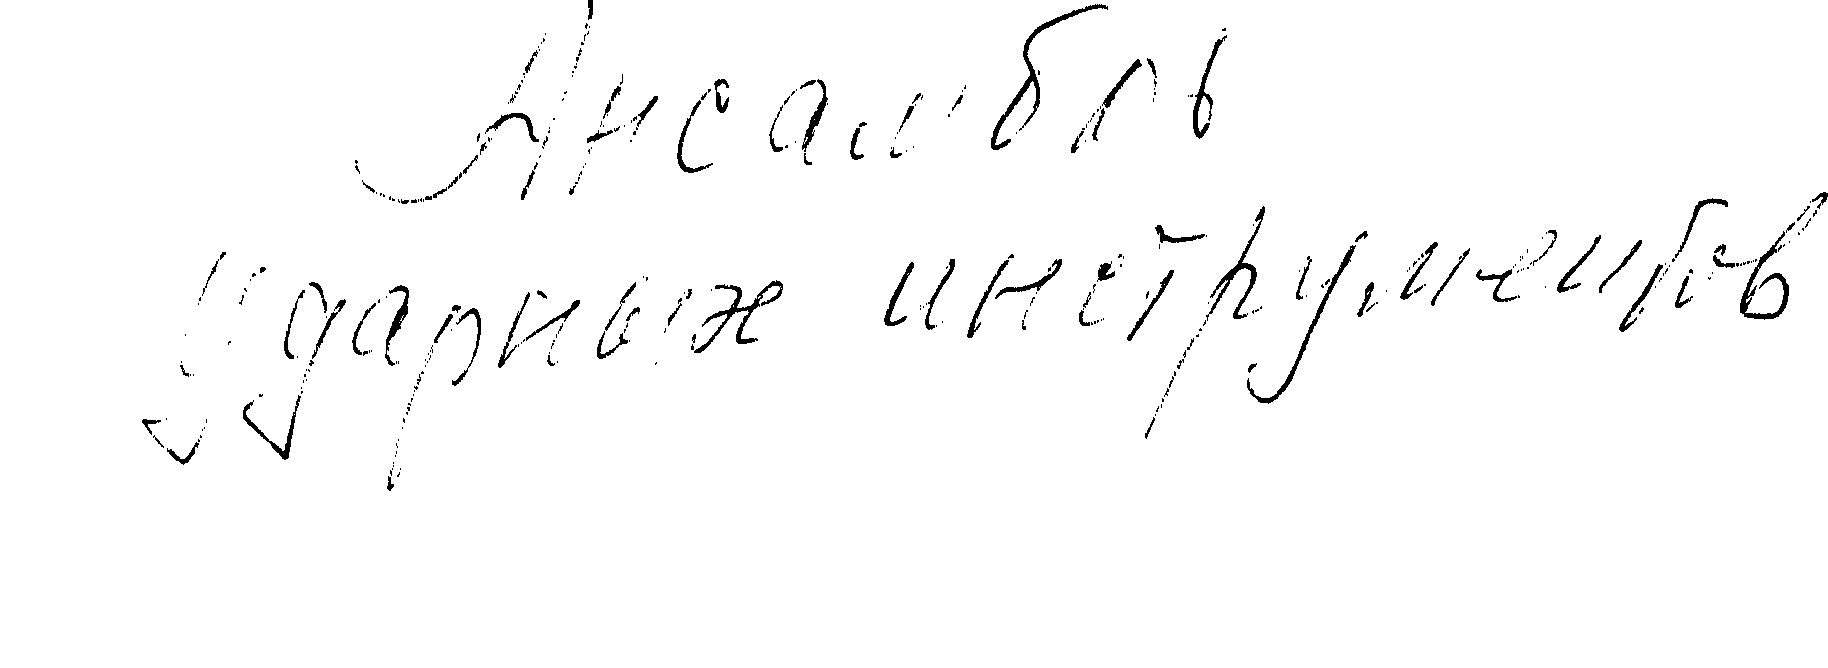 Ансамбль
ударных инструментов